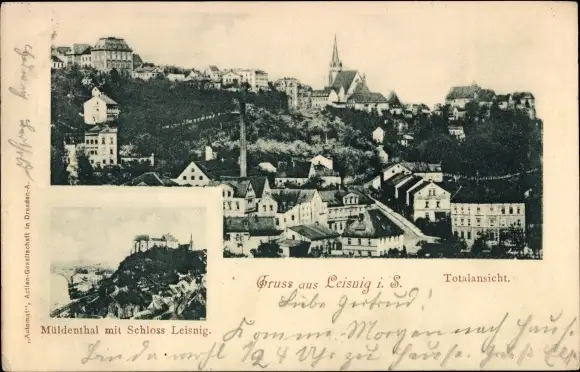 Gruss aus Leisnig i. S.
Totalansicht.
Müldenthal mit Schloss Leisnig.
„Automat", Actien-Gesellschaft in Dresden-A.
Liebe Gertrud!
Komme Morgen nach Haus,
Bin da wohl 1/2 4 Uhr zu Hause. Gruß